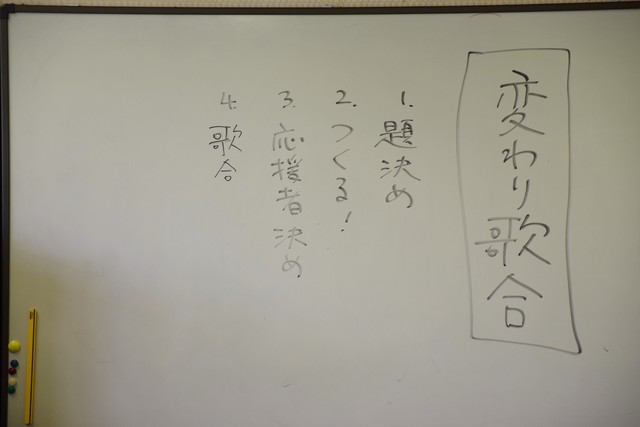 変わり歌合
1. 題決め
2. つくる!
3. 応援者決め
4. 歌合